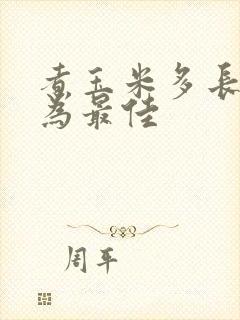 煮玉米多長
為最佳
周平